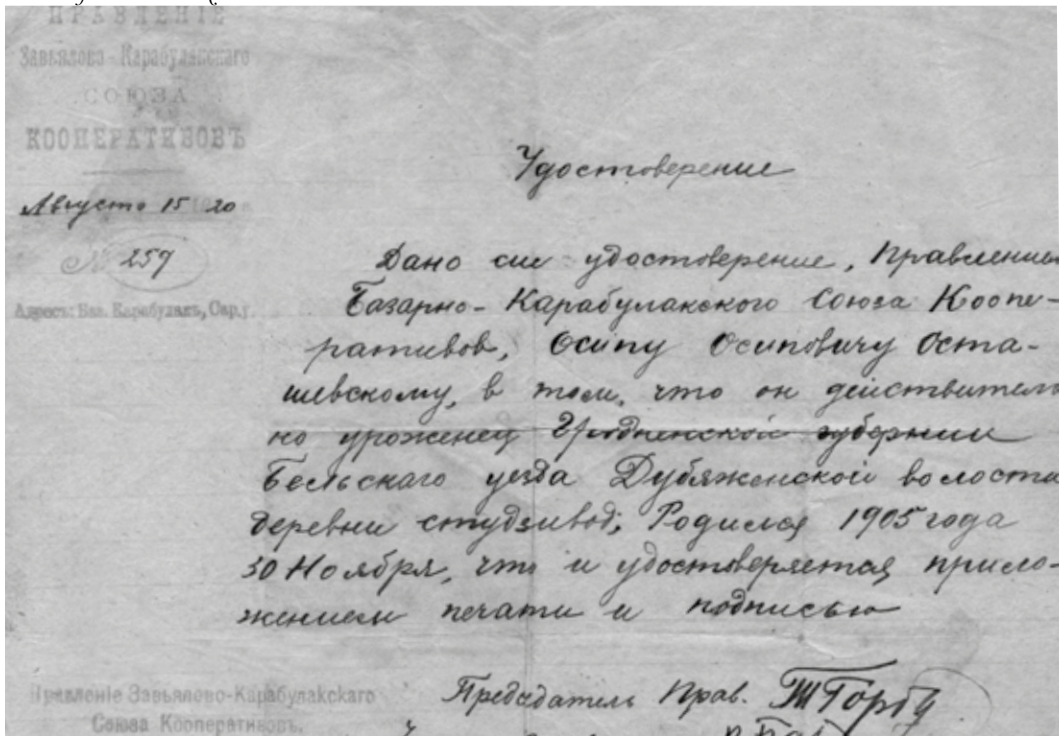 ПРАВЛЕНІЕ
Завьялово-Карабулакскаго
СОЮЗА
КООПЕРАТИВОВЪ
Августа 15 20
№ 259
Адресъ: Баз. Карабулакъ, Сар. г.
Удостоверение
Дано сие удостоверение, Правлением
Базарно-Карабулакского Союза Коопе-
ративов, Осипу Осиповичу Оста-
шевскому, в том, что он действителн
но уроженец Гродненской губернии
Бельского уезда Дубяженской волости
деревни студзивод; Родился 1905 года
30 Ноября, что и удостоверяется прило-
жением печати и подписью
Правленіе Завьялово-Карабулакскаго
Союза Кооперативовъ.
Председатель Прав.